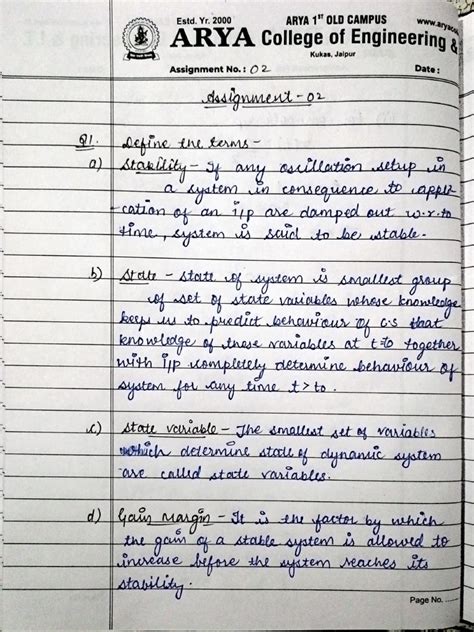 Estd. Yr. 2000
ARYA 1st OLD CAMPUS
www.aryac
ARYA College of Engineering &
Kukas, Jaipur
Assignment No. : 02
Date :
Assignment - 02
Q1. Define the terms -
a) Stability - If any oscillation setup in
a system in consequence to appli-
cation of an i/p are damped out w.r.to
time, system is said to be stable.
b) State - state of system is smallest group
of set of state variables whose knowledge
keeps us to predict behaviour of C.S that
knowledge of these variables at t=to together
with i/p completely determine behaviour of
system for any time t>to.
c) State variable - The smallest set of variables
which determine state of dynamic system
are called state variables.
d) Gain Margin - It is the factor by which
the gain of a stable system is allowed to
increase before the system reaches its
stability.
Page No.